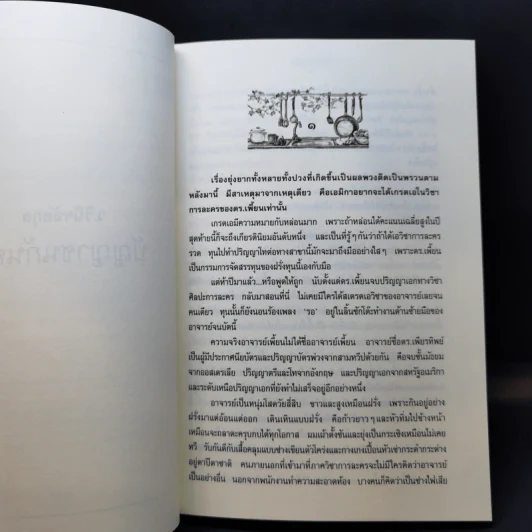 ๑
เรื่องยุ่งยากทั้งหลายทั้งปวงที่เกิดขึ้นเป็นผลพวงติดเป็นพรวนตาม
หลังมานี้ มีสาเหตุมาจากเหตุเดียว คือเอมิกาอยากจะได้เกรดเอในวิชา
การละครของดร.เพี้ยนเท่านั้น
เกรดเอมีความหมายกับหล่อนมาก เพราะถ้าหล่อนได้คะแนนเฉลี่ยสูงในปี
สุดท้ายนี้ก็จะถึงเกียรตินิยมอันดับหนึ่ง และเป็นที่รู้ๆ กันว่าถ้าได้เอวิชาการละคร
รวด ทุนไปทำปริญญาโทต่อทางสาขานี้มักจะมาถึงมืออย่างใสๆ เพราะดร.เพี้ยน
เป็นกรรมการจัดสรรทุนของฝรั่งทุนนี้เองกับมือ
แต่ห้าปีมาแล้ว...หรือพูดให้ถูก นับตั้งแต่ดร.เพี้ยนจบปริญญาเอกทางวิชา
ศิลปะการละคร กลับมาสอนที่นี่ ไม่เคยมีใครได้สเตรตเอวิชาของอาจารย์เลยจน
คนเดียว ทุนนั้นก็ยังนอนร้องเพลง 'รอ' อยู่ในลิ้นชักโต๊ะทำงานด้านซ้ายมือของ
อาจารย์จนบัดนี้
ความจริงอาจารย์เพี้ยนไม่ได้ชื่ออาจารย์เพี้ยน อาจารย์ชื่อดร.เพียรทิพย์
เป็นผู้มีประกาศนียบัตรและปริญญาบัตรพ่วงจากสามทวีปด้วยกัน คือจบชั้นมัธยม
จากออสเตรเลีย ปริญญาตรีและโทจากอังกฤษ และปริญญาเอกจากสหรัฐอเมริกา
และระดับเหนือปริญญาเอกที่ยังทำไม่เสร็จอยู่อีกอย่างหนึ่ง
อาจารย์เป็นหนุ่มโสดวัยสี่สิบ ขาวและสูงเหมือนฝรั่ง เพราะกินอยู่อย่าง
ฝรั่งมาแต่อ้อนแต่ออก เดินเหินแบบฝรั่ง คือก้าวยาวๆ และหัวทิ่มไปข้างหน้า
เหมือนจะถลาตะครุบกบได้ทุกโอกาส ผมเผ้าตั้งชันและยุ่งเป็นกระเซิงเหมือนไม่เคย
หวี รับกันดีกับเสื้อคลุมแบบช่างเขียนตัวโคร่งและกางเกงเปื้อนหัวเข่ากระดำกระด่าง
อยู่ตาปีตาชาติ คนภายนอกที่เข้ามาที่ภาควิชาการละครจะไม่มีใครคิดว่าอาจารย์
เป็นอย่างอื่น นอกจากพนักงานทำความสะอาดห้อง บางคนก็คิดว่าเป็นช่างไฟเสีย